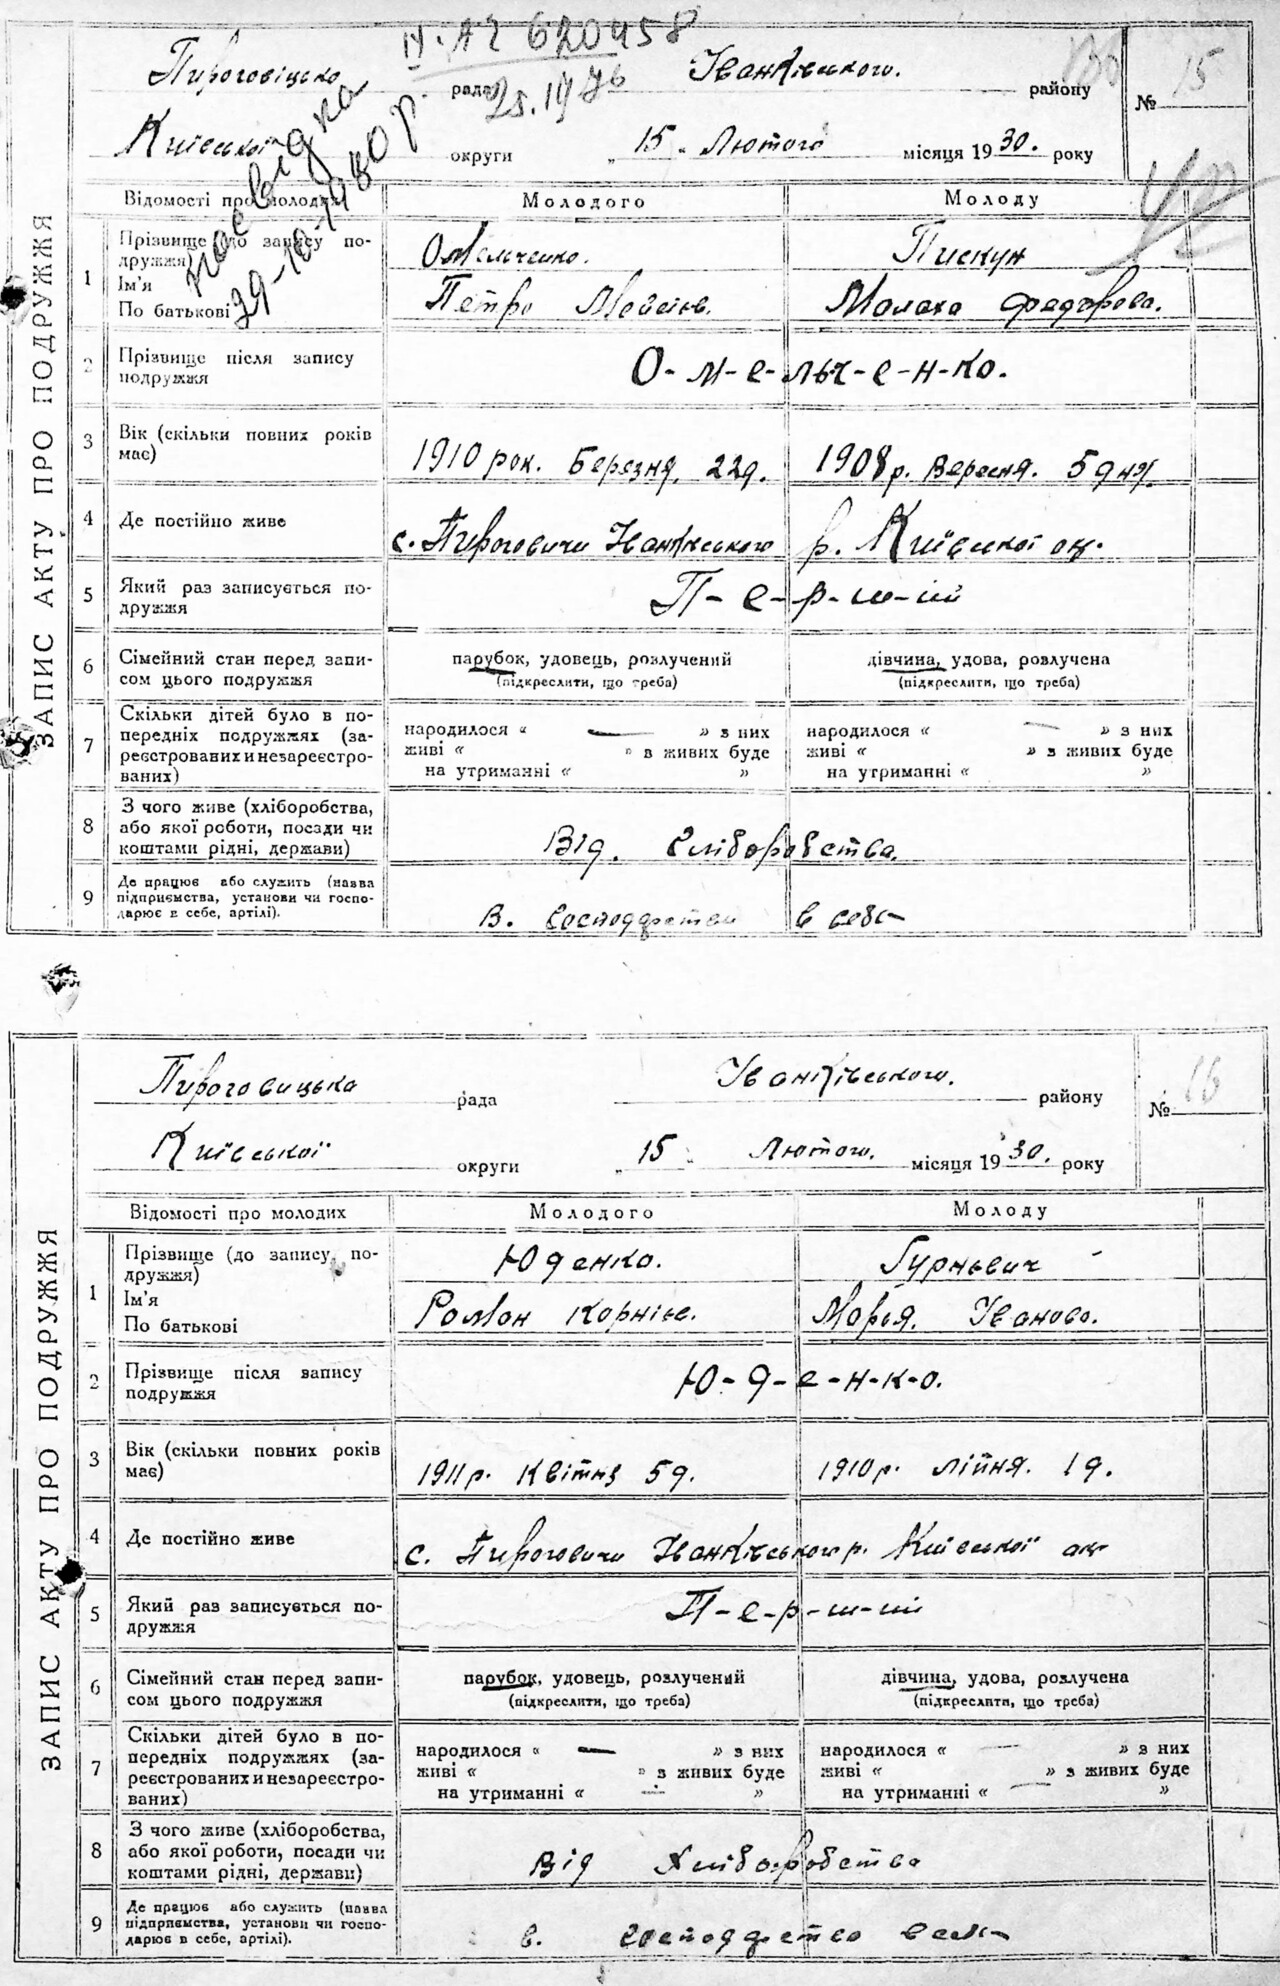 ІУ-АЧ 620458
25.ІУ 76
довідка
29-10-1980 р.
Пироговіцько рада Іванківського. району № 15
Київської округи „ 15 „ Лютого місяця 1930. року
ЗАПИС АКТУ ПРО ПОДРУЖЖЯ
Відомості про молодих Молодого Молоду
1 Прізвище (до запису подружжя) Омельченко. Пискун
Ім'я
По батькові Петро Мойсеїв. Малаха Федорова.
2 Прізвище після запису
подружжя О-м-е-льч-е-н-ко.
3 Вік (скільки повних років
має) 1910 рок. Березня. 22д. 1908 р. Вересня. 5 дня.
4 Де постійно живе с. Пироговичи Іванківського р. Київської ок.
5 Який раз записується по-
дружжя П-е-р-ш-ий
6 Сімейний стан перед запи- парубок, удовець, розлучений дівчина, удова, розлучена
сом цього подружжя (підкреслити, що треба) (підкреслити, що треба)
7 Скільки дітей було в по- народилося “ — ” з них народилося “ — ” з них
передніх подружжях (за- живі “ ” в живих буде живі “ ” з живих буде
реєстрованих и незареєстро- на утриманні “ ” на утриманні “ ”
ваних)
8 З чого живе (хліборобства,
або якої роботи, посади чи Від. Хліборобства.
коштами рідні, держави)
9 Де працює або служить (назва
підприємства, установи чи госпо- В. господарстві в себе
дарює в себе, артілі).
Пироговицька рада Іванківського. району № 16
Київської округи „ 15 „ Лютого. місяця 1930. року
ЗАПИС АКТУ ПРО ПОДРУЖЖЯ
Відомості про молодих Молодого Молоду
1 Прізвище (до запису по- Юденко. Гурневич
дружжя)
Ім'я Роман Корніїв. Марья. Іванова.
По батькові
2 Прізвище після запису
подружжя Ю-д-е-н-к-о.
3 Вік (скільки повних років
має) 1911 р. Квітня 5д. 1910 р. Ліпня. 1д.
4 Де постійно живе с. Пироговичи Іванківського р. Київської ок
5 Який раз записується по-
дружжя П-е-р-ш-ий
6 Сімейний стан перед запи- парубок, удовець, розлучений дівчина, удова, розлучена
сом цього подружжя (підкреслити, що треба) (підкреслити, що треба)
7 Скільки дітей було в по- народилося “ — ” з них народилося “ — ” з них
передніх подружжях (за- живі “ ” з живих буде живі “ ” з живих буде
реєстрованих и незареєстро- на утриманні “ — ” на утриманні “ — ”
ваних)
8 З чого живе (хліборобства,
або якої роботи, посади чи Від Хліборобства
коштами рідні, держави)
9 Де працює або служить (назва
підприємства, установи чи госпо- в. господарство в себе
дарює в себе, артілі).